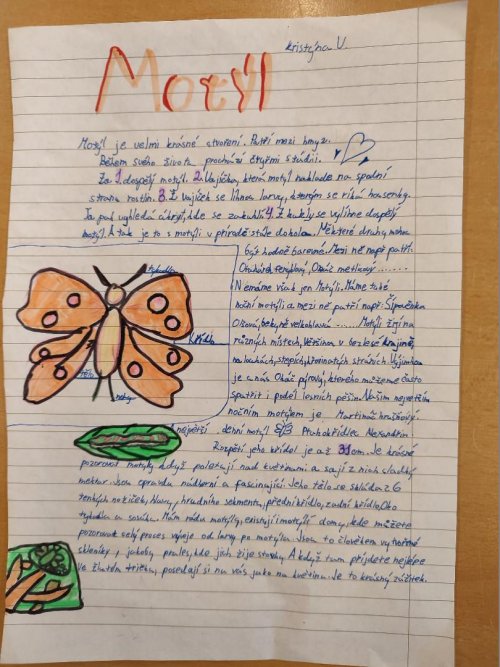 Kristýna V.
Motýl
Motýl je velmi krásné stvoření. Patří mezi hmyz.
Během svého života prochází čtyřmi stádii.
Za 1. dospělý motýl. 2. Vajíčka, která motýl naklade na spodní
stranu rostlin. 3. Z vajíček se líhnou larvy, kterým se říká housenky.
Ta pak vyhledá úkryt, kde se zakuklí. 4. Z kukly se vylíhne dospělý
motýl. A tak je to s motýli v přírodě stále dokola. Některé druhy mohou
být hodně barevné. Mezi ně např. patří.
Otakárek fenyklový, Okáč metlicový .......
Nemáme však jen Motýli. Máme také
noční motýli a mezi ně patří např: Šípověnka
velkohlavá ...... Motýli žijí na
různých místech, většina v bezlesé krajině,
na loukách, stepích, křovinatých stráních. Výjimkou
je u nás Okáč pýrový, kterého můžeme často
spatřit i podél lesních pěšin. Naším největším
nočním motýlem je Martináč hrušňový.
největší denní motýl je Ptakokřídlec Alexandřin
Rozpětí jeho křídel je až 31 cm. Je krásné
pozorovat motýly když poletují nad květinami a sají z nich sladký
nektar. Jsou opravdu nádherní a fascinující. Jeho tělo se skládá z 6
tenkých nožiček, hlavy, hrudního segmentu, přední křídlo, zadní křídlo, Oko
tykadla a sosáku. Mám ráda motýly, existují motýlí domy, kde můžete
pozorovat celý proces vývoje od larvy po motýla. Jsou to člověkem vytvořené
skleníky, jakoby, prales, kde jich žije stovky. A když tam přijdete nejlépe
ve žlutém tričku, posedají si na vás jako na květinu. Je to krásný zážitek.
tykadla
křídlo
tělo
nohy